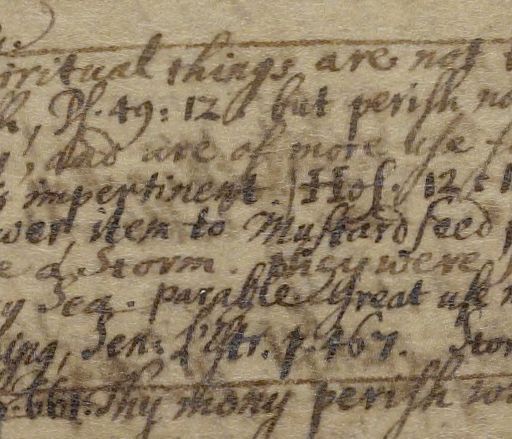 spiritual things are not
Ps. 49: 12. but perish
and are of more use
impertinent. Hos. 12:
item to Mustard seed
a storm. they were
Sea. parable Great use
Sen: L'Estr. p. 467. Stor
661. Thy mony perish